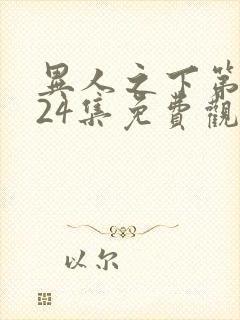 異人之下第
24集免費觀
以尔